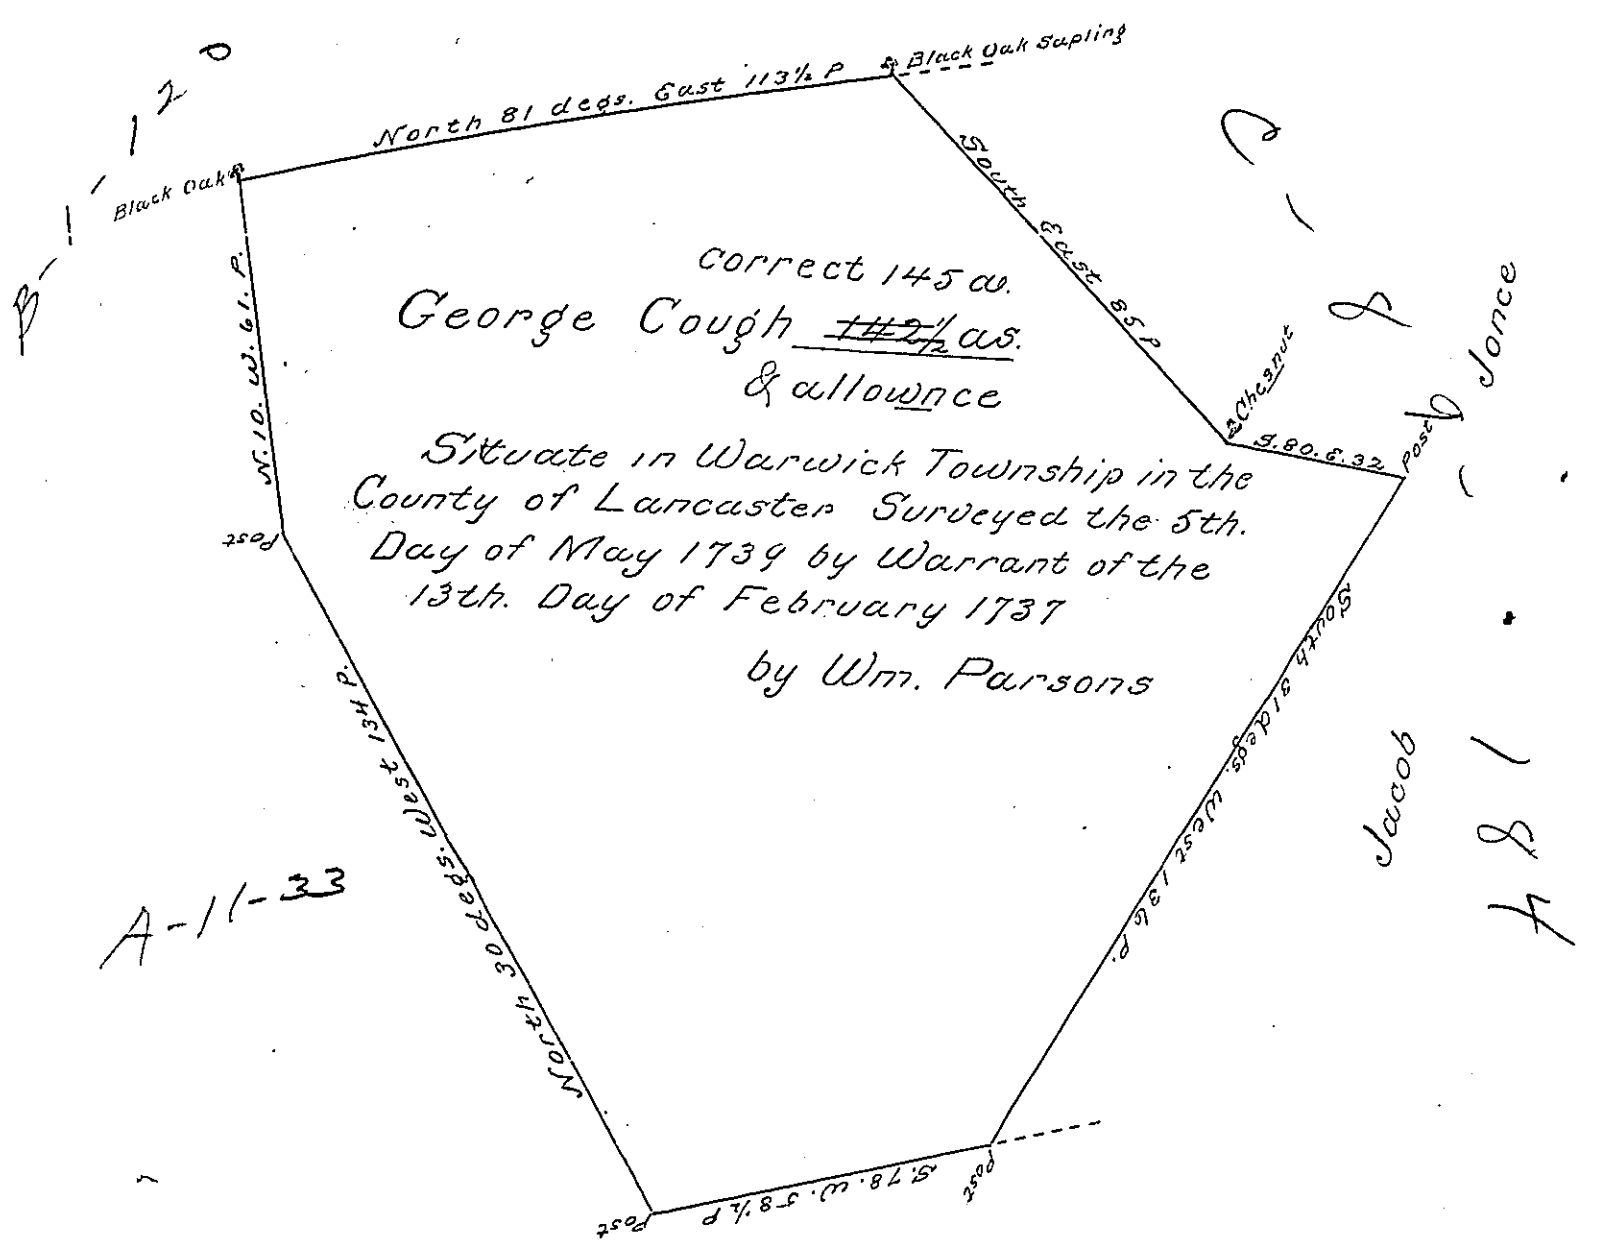 B-1-120
Black Oak
North 81 degs. East 113½ P
Black Oak Sapling
South East 85 P
Chesnut
S. 80. E. 32
Post
C-86-184
Jacob Jonce
N. 10. W. 61. P.
correct 145 a.
George Cough 142½ as.
& allownce
Situate in Warwick Township in the
County of Lancaster Surveyed the 5th.
Day of May 1739 by Warrant of the
13th. Day of February 1737
by Wm. Parsons
Post
South 31 degs. West 136 P.
North 30 degs. West 134 P.
A-11-33
Post
S. 78. W. 58½ P
Post